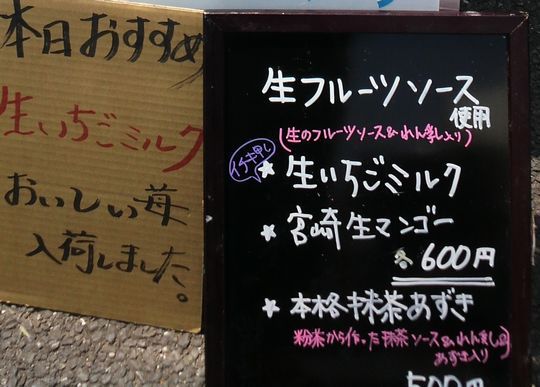 本日おすすめ
生いちごミルク
おいしい苺
入荷しました。
生フルーツソース
使用
(生のフルーツソース&れん乳入り)
イチ押し
★生いちごミルク
★宮崎生マンゴー
各600円
★本格抹茶あずき
粉茶から作った抹茶ソース&れん乳
あずき入り
500円